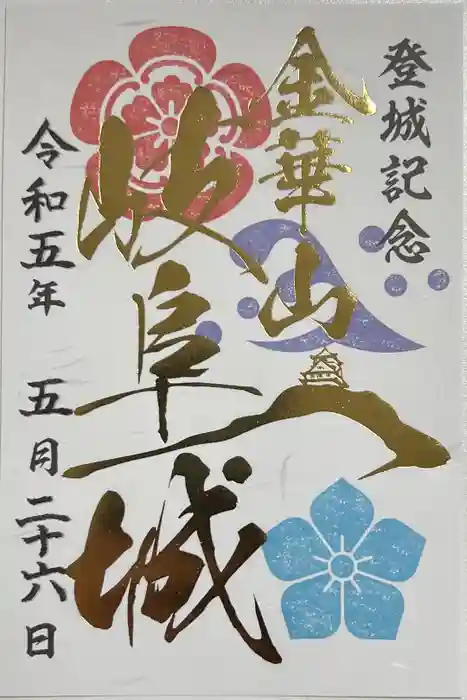 登城記念
金華山
岐阜城
令和五年 五月二十六日